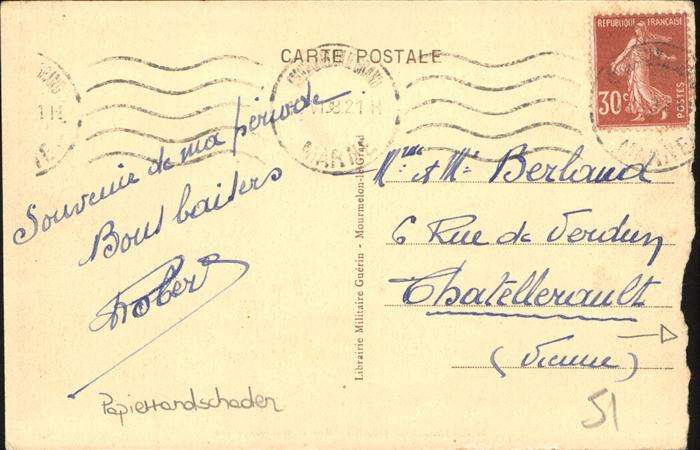 CARTE POSTALE
REPUBLIQUE FRANÇAISE
30c
POSTES
21 H
MARNE
Souvenir de ma période
Bons baisers
Robert
Mme & Mr Berland
6 Rue de Verdun
Chatellerault
(Vienne)
Librairie Militaire Guérin - Mourmelon-le-Grand
Papierrandschaden
51